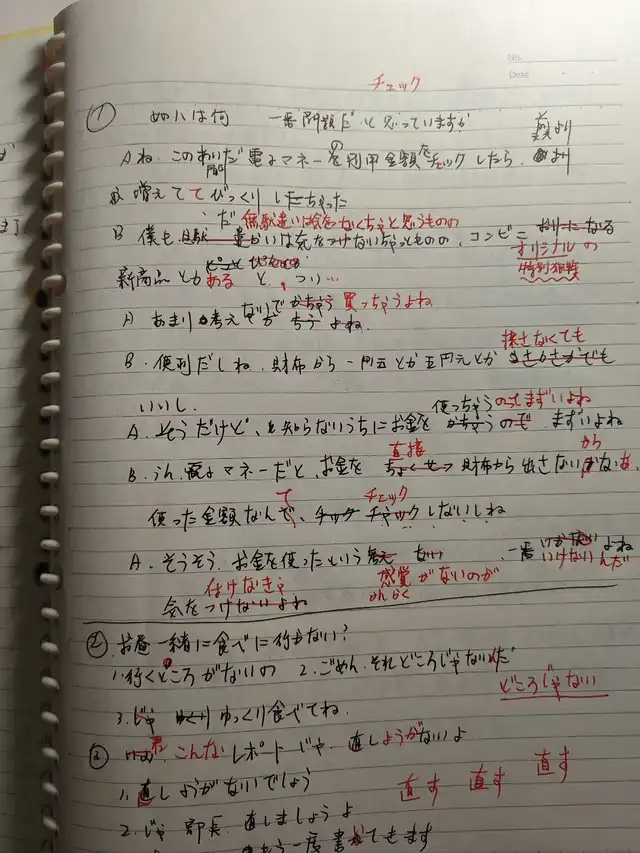 No.
Date
チェック
① 女の人は何 一番問題だと思っていますか
A ね、このあいだ 電子マネーの利用金額をチェックしたら、 前より
間
増えてて びっくりしちゃった
だ 無駄遣いは気をつけなくちゃと思うものの
B 僕も 無駄遣いは気をつけないちゃっとものの、コンビニ
オリジナルの
特別
新商品とか あると、つい…
A あまり考えないで 買っちゃうよね
B. 便利だしね、財布から一円玉とか五円元とか 探さなくても
いいし.
使っちゃうのってまずいよね
A. そうだけど、知らないうちにお金を ので まずいよね
直接 から
B. うん、電子マネーだと、お金を ちょくせつ 財布から出さない
て チェック
使った金額なんて、チェックしないしね
A. そうそう、お金を使ったという 一番いけないんだよね
付けなきゃ 感覚がないのが
かんかく
気をつけないよね
② お昼一緒に食べに行かない?
1. 行くところがないの 2. ごめん、それどころじゃないんだ
どころじゃない
3. じゃ ゆっくり食べてね.
③ こんなレポートじゃ、直しようがないよ
1. 直しようがないでしょう
直す 直す 直す
2. じゃ 部長、直しましょうよ
もう一度書